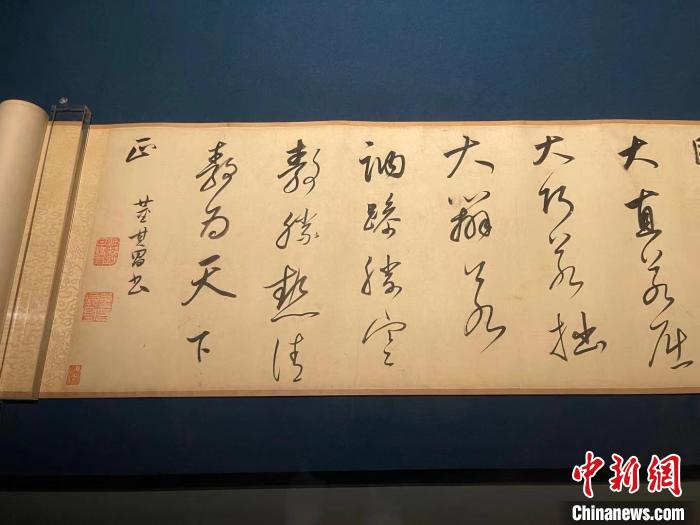 大直若屈
大巧若拙
大辯若
訥躁勝寒
靜勝熱清
靜為天下
正
董其昌書
中新網
Chinanews.com